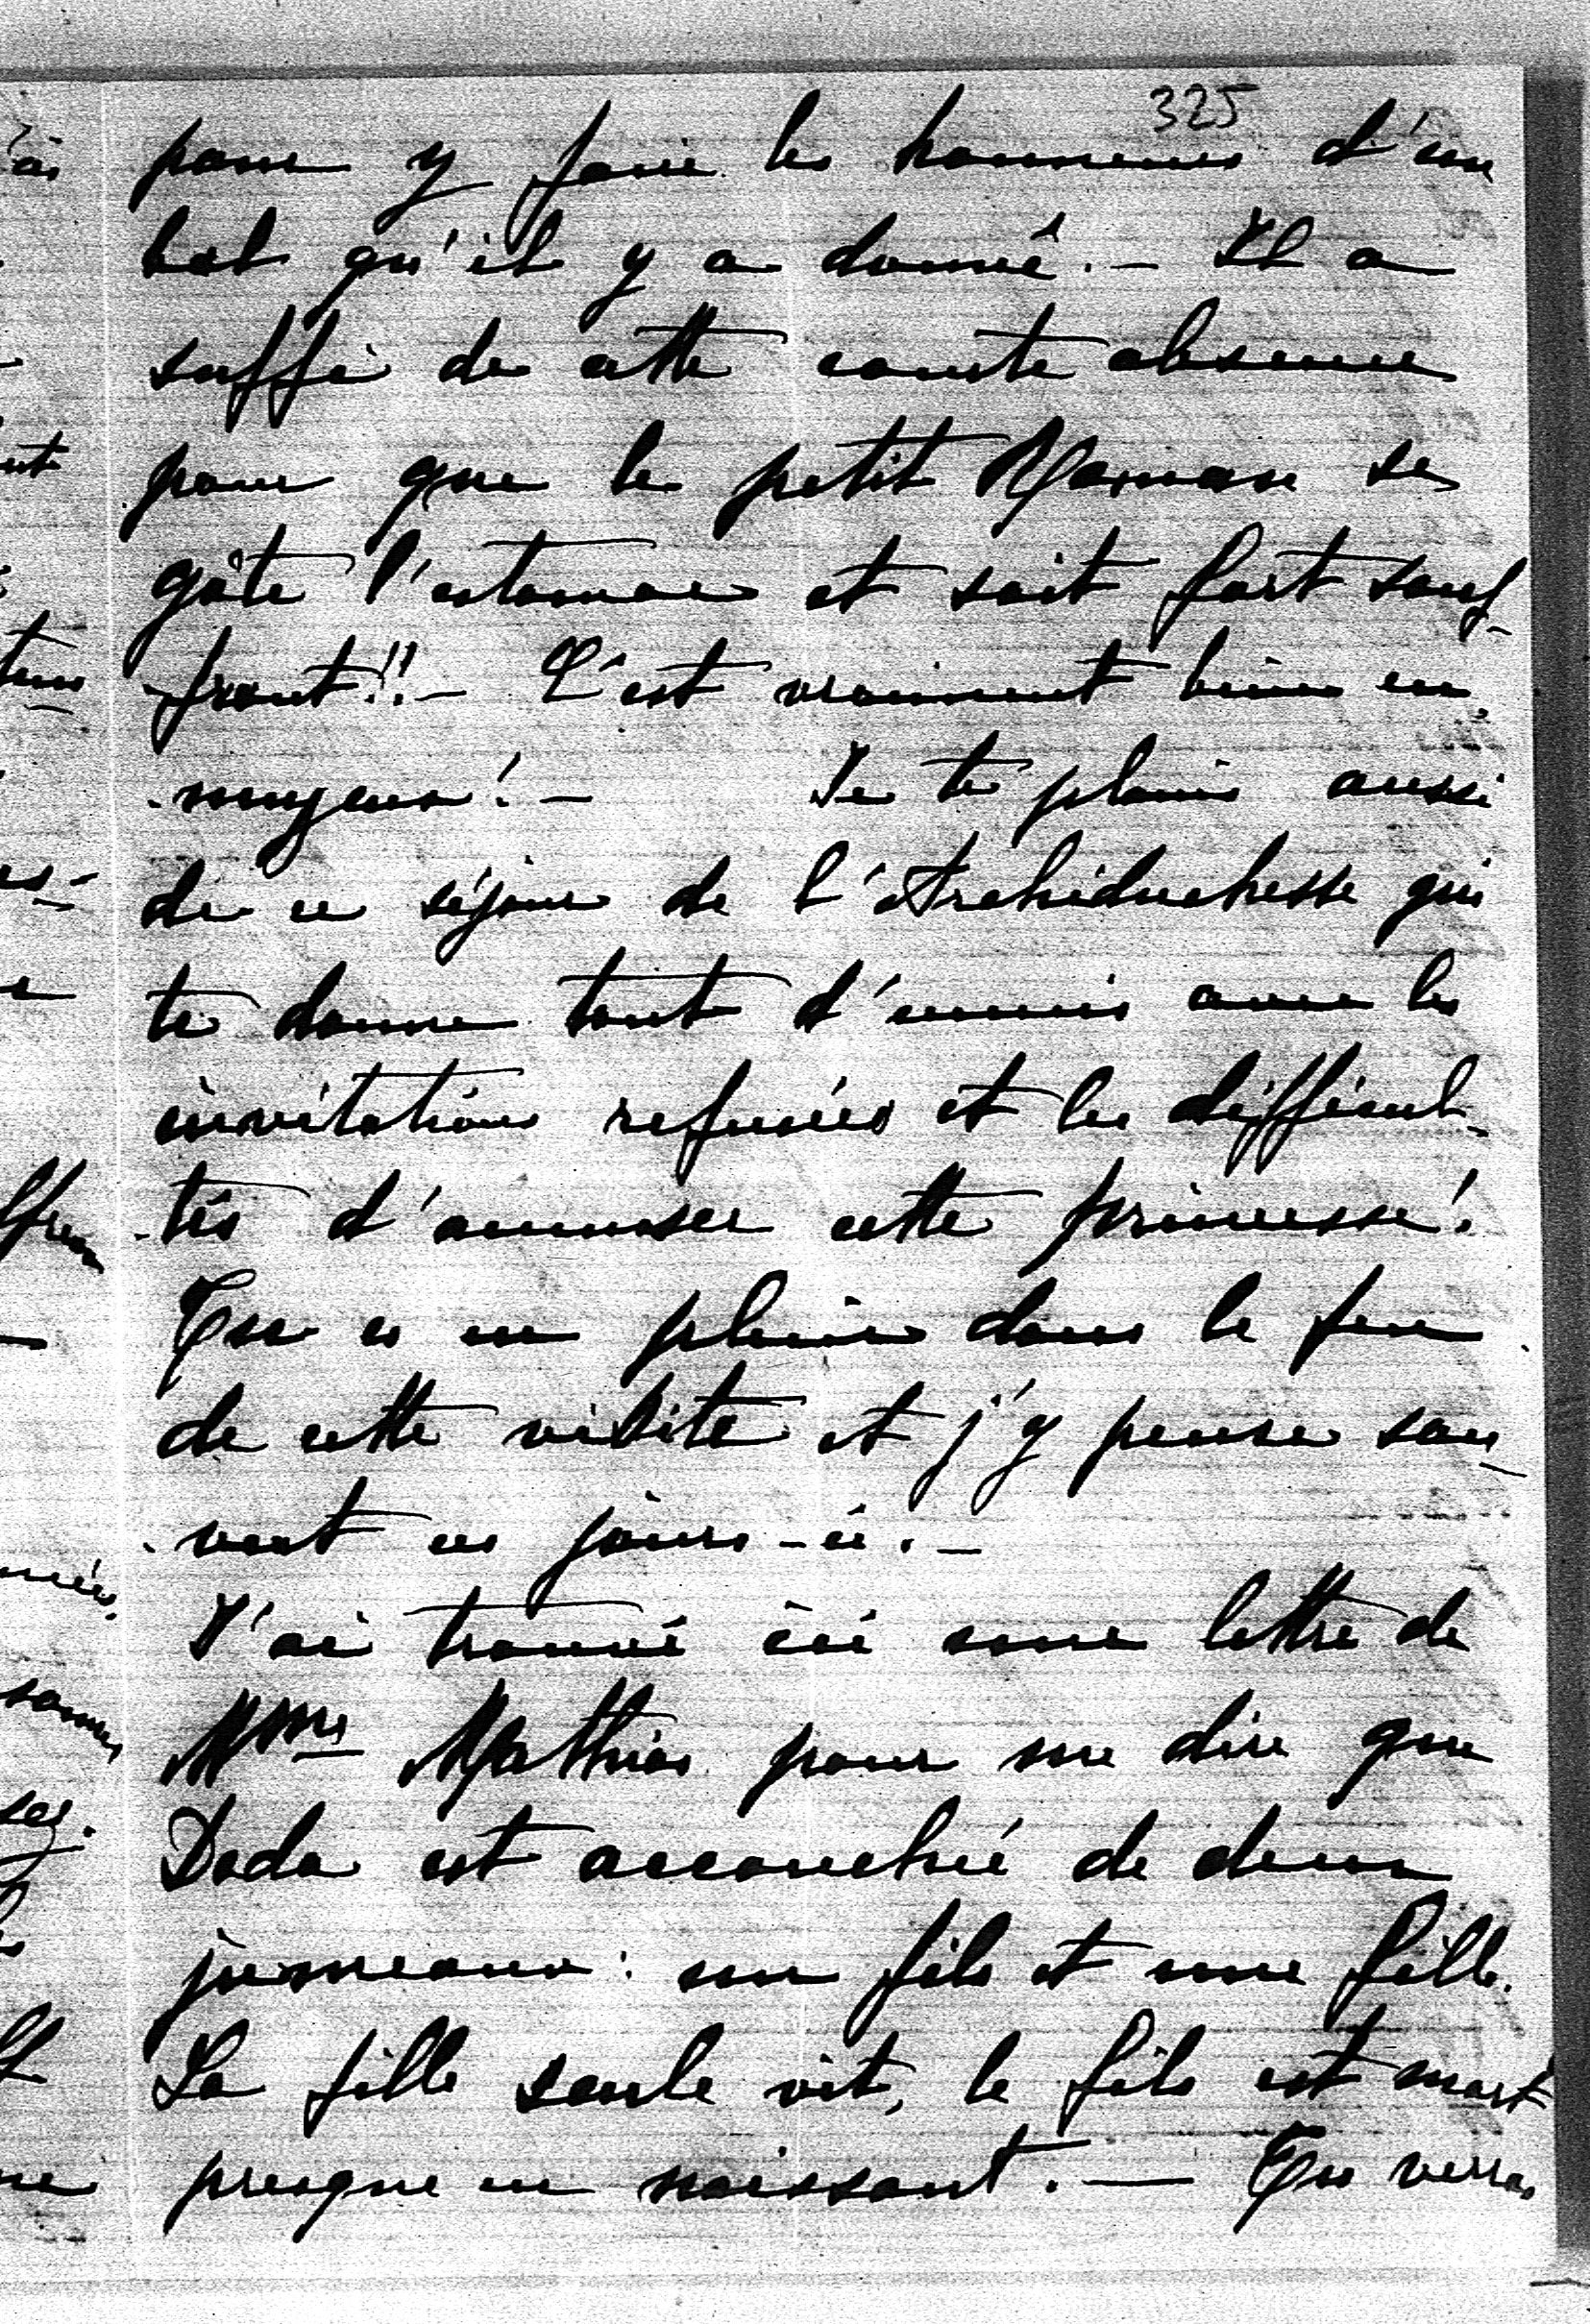 325
pour y faire les honneurs d'un
bal qu'il y a donné. — Il a
suffi de cette courte absence
pour que le petit Maman se
gâte l'estomac et soit fort souf-
-frant!! — C'est vraiment bien en-
-nuyeux! — Je te plains aussi
de ce séjour de l'Archiduchesse qui
te donne tant d'ennuis avec les
invitations refusées et les difficul-
-tés d'amuser cette princesse!
Tu es en plein dans le feu
de cette visite et j'y pense sou-
-vent ces jours-ci. —
J'ai trouvé ici une lettre de
Mme Mathias pour me dire que
Dada est accouchée de deux
jumeaux: un fils et une fille.
La fille seule vit, le fils est mort
presque en naissant. — Tu verras